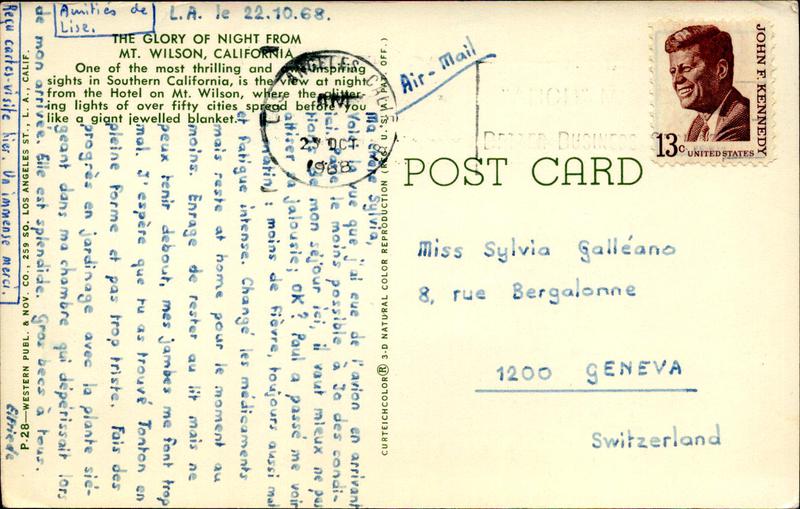 Amitiés de
Lise.
L.A. le 22.10.68.
THE GLORY OF NIGHT FROM
MT. WILSON, CALIFORNIA
One of the most thrilling and inspiring
sights in Southern California, is the view at night
from the Hotel on Mt. Wilson, where the glitter-
ing lights of over fifty cities spread before you
like a giant jewelled blanket.
Air-Mail
LOS ANGELES, CALIF.
OCT
1968
BETTER BUSINESS
JOHN F. KENNEDY
13c UNITED STATES
POST CARD
Miss Sylvia Galléano
8, rue Bergalonne
1200 GENEVA
Switzerland
Ma chère Sylvia,
Voici la vue que j'ai eue de l'avion en arrivant
le moins possible à des condi-
de mon séjour ici, il vaut mieux ne pas
attiser la jalousie; OK? Paul a passé me voir
matin: moins de fièvre, toujours aussi mal
et fatigue intense. Changé les médicaments
mais reste at home pour le moment au
moins. Enrage de rester au lit mais ne
peux tenir debout, mes jambes me font trop
mal. J'espère que tu as trouvé Tonton en
pleine forme et pas trop triste. Fais des
progrès en jardinage avec la plante sié-
geant dans ma chambre qui dépérissait lors
de mon arrivée. Elle est splendide. Gros becs à tous.
Reçu cartes visite hier. Un immense merci.
P-28—WESTERN PUBL. & NOV. CO., 259 SO. LOS ANGELES ST., L.A., CALIF.
CURTEICHCOLOR® 3-D NATURAL COLOR REPRODUCTION (REG. U.S.A. PAT. OFF.)